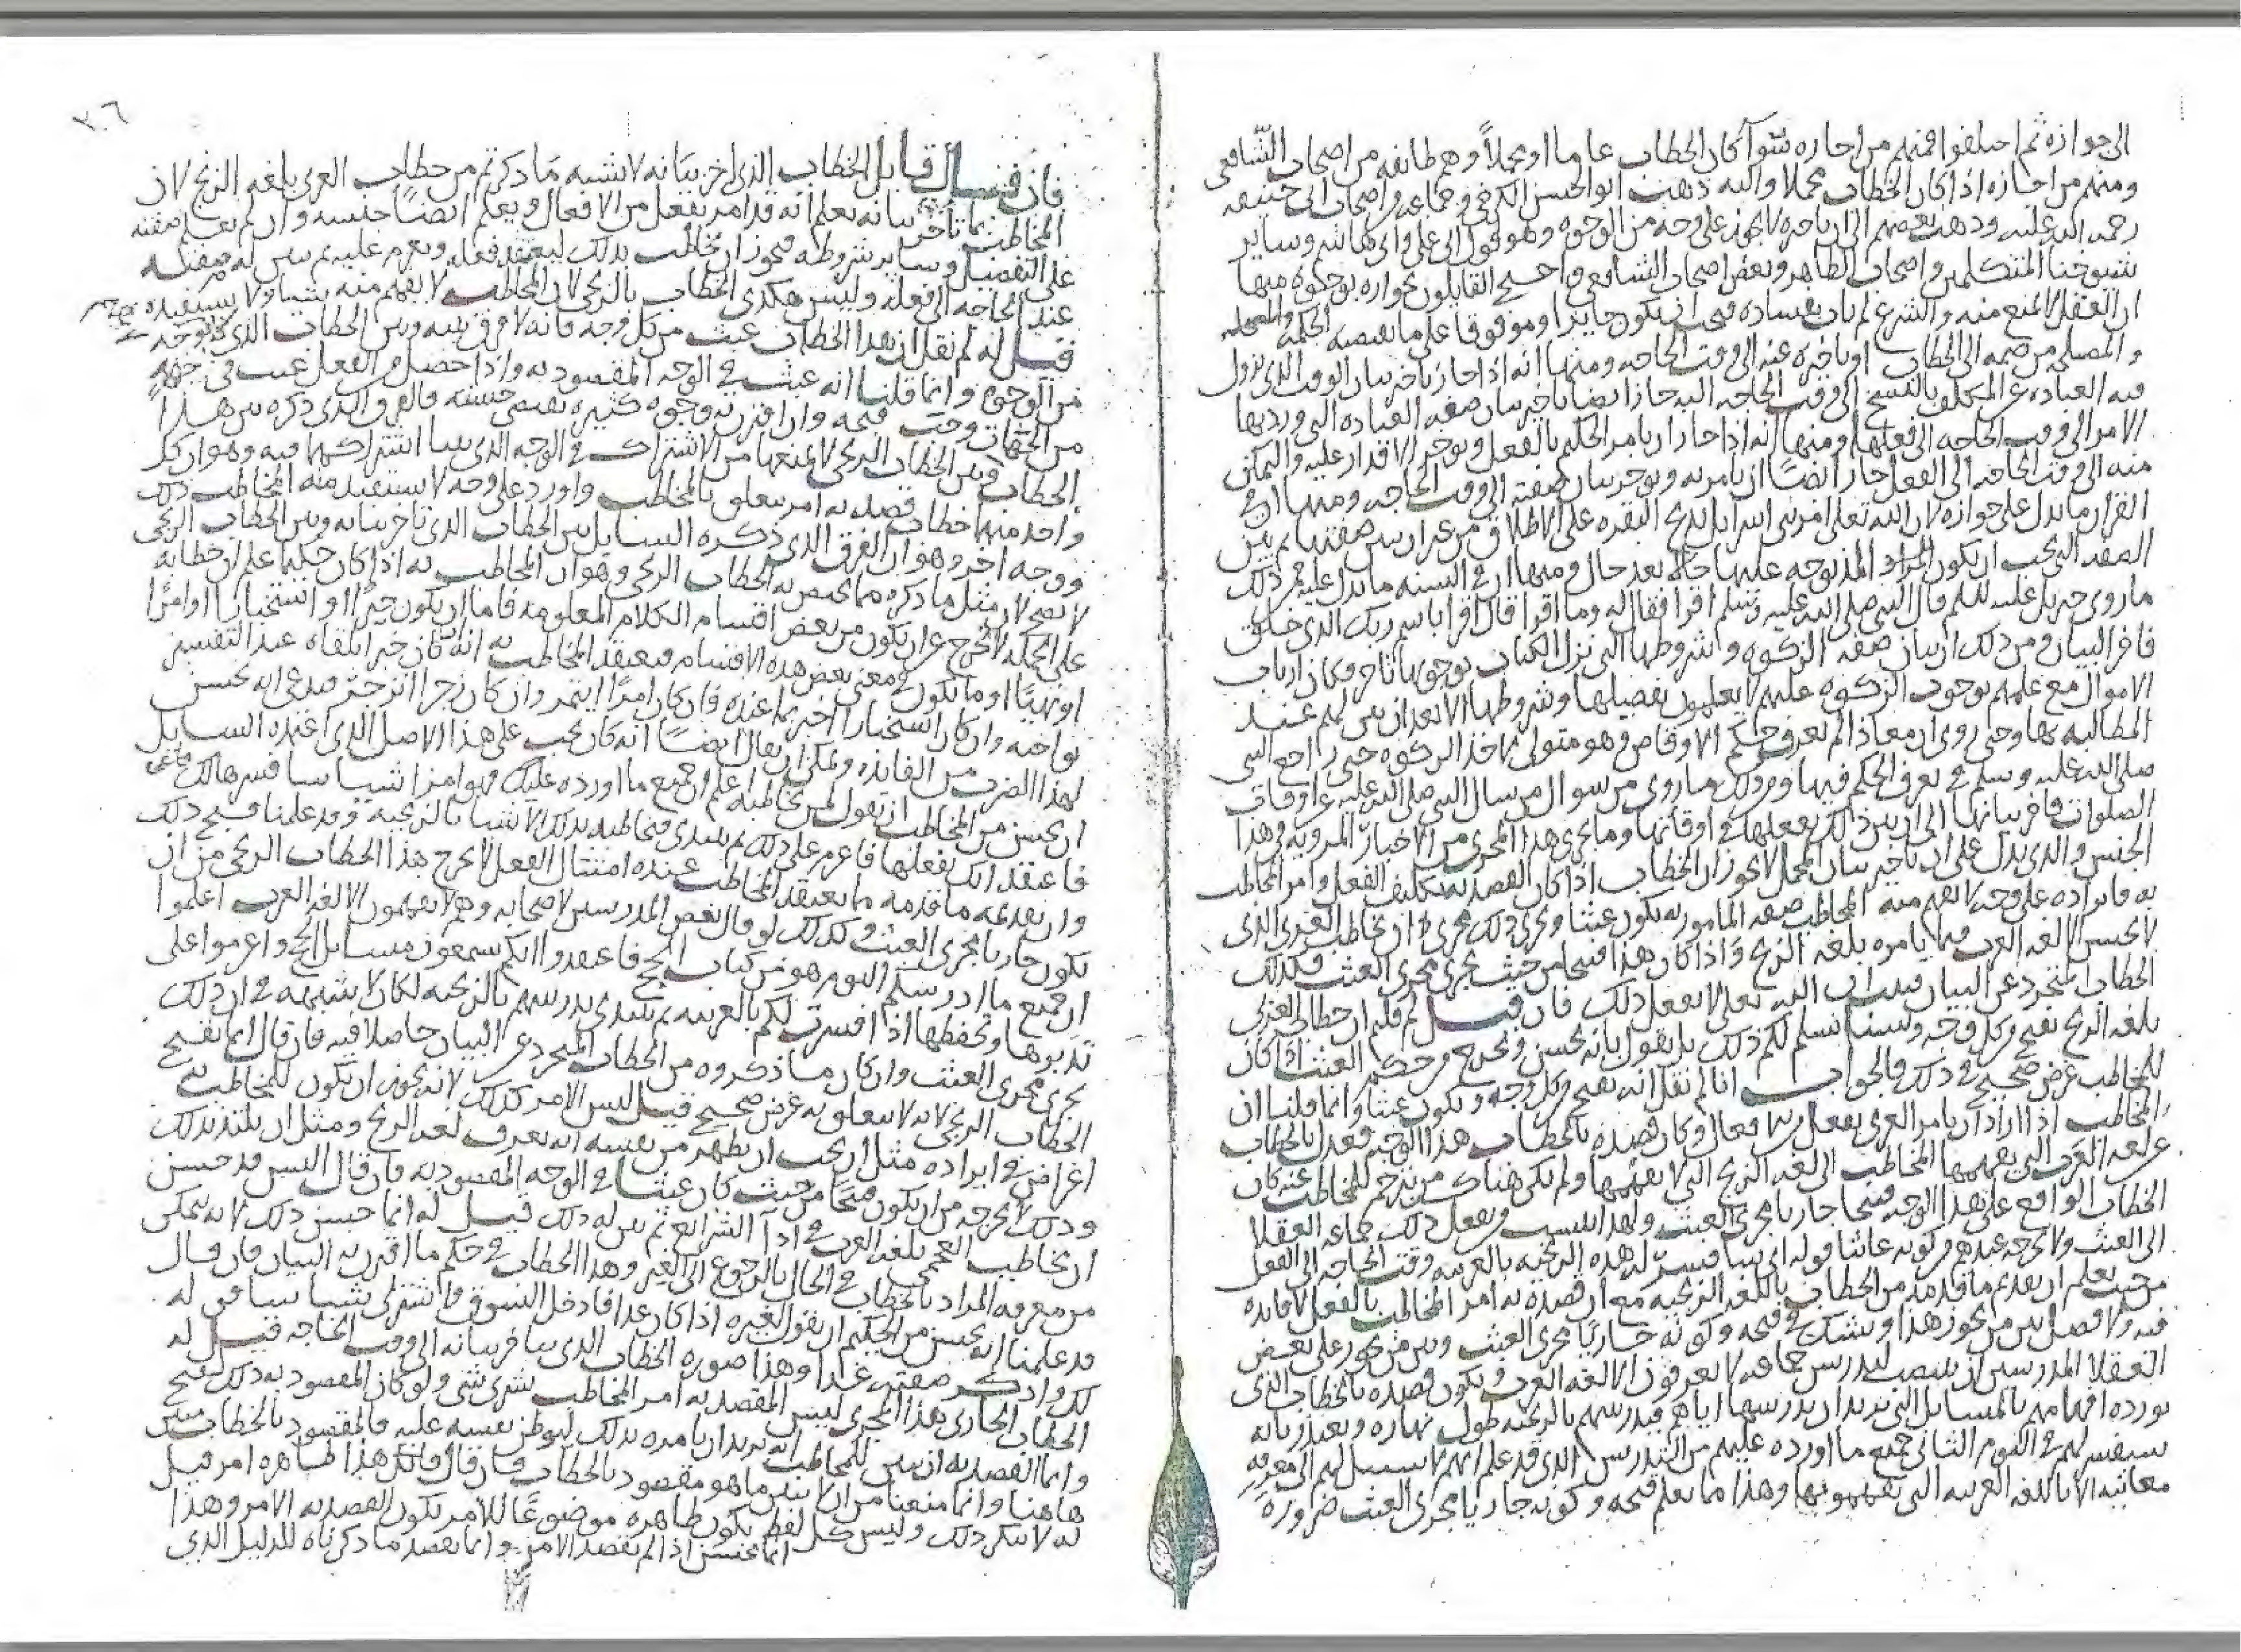 الى جوازه ثم اختلفوا فمنهم من اجازه سوآ كان الخطاب عاما او مجملاً وهم طائفه من اصحاب الشافعى
ومنهم من اجازه اذا كان الخطاب مجملا واليه ذهب ابو الحسن الكرخى وجماعه من اصحاب ابى حنيفه
رحمه الله عليه وذهب بعضهم الى ان تاخيره لا يجوز على وجه من الوجوه وهو قول ابى على وابى هاشم وساير
شيوخنا المتكلمين واصحاب الظاهر وبعض اصحاب الشافعى واحتج القايلون بجوازه بوجوه منها
ان العقل لا يمنع منه والشرع لم يات بفساده فيجب ان يكون جايزا وموقوفا على ما تقتضيه الحكمه والمصلحه
والمصلحه من ضمه الى الخطاب او تاخيره عنه الى وقت الحاجه ومنها انه اذا جاز تاخير بيان الوقت الذى تزول
فيه العباده عن المكلف بالنسخ الى وقت الحاجه اليه جاز ايضا تاخير بيان صفه العباده التى ورد بها
الامر الى وقت الحاجه الى فعلها ومنها انه اذا جاز ان يامر الحكيم بالفعل ويوخر الاقدار عليه والتمكين
منه الى وقت الحاجه الى الفعل جاز ايضًا ان يامر به ويوخر بيان صفته الى وقت الحاجه ومنها ان فى
القران ما يدل على جوازه لان الله تعلى امر بنى اسرايل بذبح البقره على الاطلاق من غير ان يبين صفتها ثم بين
الصفه التى يجب ان يكون المراد المذبوحه عليها حالا بعد حال ومنها ان فى السنه ما يدل عليه فمن ذلك
ما روى جبريل عليه السلم قال للنبى صلى الله عليه وسلم اقرا فقال له وما اقرا قال اقرا باسم ربك الذى خلق
فاخر البيان ومن ذلك ان بيان صفه الزكوه وشروطها التى نزل الكتاب بوجوبها تاخر وكان ارباب
الاموال مع علمهم بوجوب الزكوه عليهم لا يعلمون تفصيلها وشروطها الا بعد ان بين لهم عند
المطالبه بها وحتى روى ان معاذا لم يعرف حكم الاوقاص وهو متولى لاخذ الزكوه حتى راجع النبى
صلى الله عليه وسلم فى تعرف الحكم فيها ومن ذلك ما روى من سوال من سال النبى صلى الله عليه عن اوقات
الصلوات فاخر بيانها الى ان بين ذلك بفعلها فى اوقاتها وما يجرى هذا المجرى من الاخبار المرويه فى هذا
الجنس والذى يدل على ان تاخير بيان المجمل لا يجوز ان الخطاب اذا كان القصد به تكليف الفعل وامر المخاطب
به فايراده على وجه لا يفهم منه المخاطب صفه المامور به يكون عبثا ويجرى ذلك مجرى ان يخاطب العربى الذى
لا يحسن الا لغه العرب فيما يامره بلغه الزنج واذا كان هذا قبيحا من حيث يجرى مجرى العبث فكذلك
الخطاب المتجرد عن البيان فيجب ان الله تعلى لا يفعل ذلك فان قيل لم قلتم ان خطاب العربى
بلغه الزنج يقبح من كل وجه ولسنا نسلم لكم ذلك بل نقول بانه يحسن ويخرج من حكم العبث اذا كان
للمخاطب غرض صحيح فى ذلك فالجواب انا لم نقل انه يقبح من كل وجه ويكون عبثا وانما قلنا ان
المخاطب اذا اراد ان يامر العربى بفعل من الافعال وكان قصده بالخطاب هذا الوجه فعدل بالخطاب
عن لغه العرب التى يفهمها المخاطب الى لغه الزنج التى لا يفهمها ولم يكن هناك من يترجم للمخاطب عنه كان
الخطاب الواقع على هذا الوجه قبيحا جاريا مجرى العبث ولهذا ينسب من يفعل ذلك جماعه العقلا
الى العبث ولا يخرجه عندهم من كونه عابثا قوله انى سافسر له هذه الزنجيه بالعربيه وقت الحاجه الى الفعل
من حيث يعلم ان تقديم ما قدمه من الخطاب باللغه الزنجيه مع ان قصده به امر المخاطب بالفعل لا فايده
فيه ولا فصل بين من يجوز هذا ويشك فى قبحه وكونه جاريًا مجرى العبث وبين من يجوز على بعض
العقلا المدرسين ان ينتصب ليدرس جماعه لا يعرفون الا لغه العرب ويكون قصده بالخطاب الذى
يورده افهامهم بالمسايل التى يريد ان يدرسها اياهم فيدرسهم بالزنجيه طول نهاره ويعتذر بانه
سيفسر لهم فى اليوم الثانى جميع ما اورده عليهم من التدريس الذى قد علم انهم لا سبيل لهم الى معرفه
معانيه الا باللغه العربيه التى يفهمونها وهذا مما يعلم قبحه وكونه جاريا مجرى العبث ضروره
٣٠٦
فان قيل قايل الخطاب الذى اخر بيانه لا يشبه ما ذكرتم من خطاب العربى بلغه الزنج لان
المخاطب بما تاخر بيانه يعلم انه قد امر بفعل من الافعال ويعلم ايضًا جنسه وان لم يعلم صفته
على التفصيل وساير شروطه فيجوز ان يخاطب بذلك ليعتقد فعله ويعزم عليه ثم يبين له صفته
عند الحاجه الى فعله وليس هكذى الخطاب بالزنجى لان المخاطب لا يفهم منه شيا ولا يستفيده
قيل له لم نقل ان هذا الخطاب عبث من كل وجه فانه لا فرق بينه وبين الخطاب الذى
من الوجوه وانما قلنا انه عبث فى الوجه المقصود به واذا حصل الفعل عبث من جهه
من الجهات وجب قبحه وان اقترن به وجوه كثيره تقتضى حسنه فالفرق الذى ذكره بين هذا
الخطاب وبين الخطاب الزنجى لا يمنعها من الاشتراك فى الوجه الذى بينا اشتراكهما فيه وهو ان كل
واحد منهما خطاب قصد به امر يتعلق بالمخاطب واورد على وجه لا يستفيد منه المخاطب ذلك
ووجه اخر وهو ان الفرق الذى ذكره السايل بين الخطاب الذى تاخر بيانه وبين الخطاب الزنجى
لا يصح لان مثل ما ذكره مما يختص به الخطاب الزنجى وهو ان المخاطب به اذا كان حكيما علم ان خطابه
على الحكمه لا يخرج عن ان يكون من بعض اقسام الكلام المعلومه فاما ان يكون خبرًا او استخبارا او امرًا
او نهيًا او ما يكون فى معنى بعض هذه الاقسام فيعتقد المخاطب به انه ان كان خبرا تلقاه عند التفسير
بواجبه وان كان استخبارا اخبر بما عنده فان كان امرًا ايتمر وان كان زجرا انزجر فيدعى انه يحسن
لهذا الضرب من الفايده ويمكن ان يقال ايضًا انه كان يجب على هذا الاصل الذى اعتمده السايل
ان يحسن من المخاطب ان يقول لمن يخاطبه اعلم ان جميع ما اورده عليك هو امر باشيا سافسرها لك
فاعتقد انك تفعلها فاعزم على ذلك ثم يبتدى فيخاطبه بذلك الاشيا بالزنجيه وقد علمنا قبح ذلك
وان تقديمه ما قدمه مما يعتقد المخاطب عنده امتثال الفعل لا يخرج هذا الخطاب الزنجى من ان
يكون جاريا مجرى العبث وكذلك لو قال بعض المدرسين لاصحابه وهم لا يفهمون الا لغه العرب اعلموا
ان جميع ما ادرسكم اليوم هو من كتاب الحج فاعتقدوا انكم تسمعون مسايل الحج واعزموا على
تدبرها وتحفظها اذا فسرت لكم بالعربيه ثم يبتدى يدرسهم بالزنجيه لكان لا شبهه فى ان ذلك
يجرى مجرى العبث وان كان ما ذكروه من الخطاب المتجرد عن البيان حاصلا فيه فان قال انما يقبح
الخطاب الزنجى لانه لا يتعلق به غرض صحيح قيل ليس الامر كذلك لانه يجوز ان يكون للمخاطب به
اغراض فى ايراده مثل ان يحب ان يظهر من نفسه انه يعرف لغه الزنج ومثل ان يلتذ بذلك
وذلك لا يخرجه من ان يكون قبيحًا من حيث كان عبثا فى الوجه المقصود به فان قال اليس قد حسن
ان يخاطب العجمى بلغه العرب فى ادآ الشرايع ثم يبين له ذلك قيل له انما حسن ذلك لانه يتمكن
من معرفه المراد بالخطاب فى الحال بالرجوع الى الغير وهذا الخطاب فى حكم ما اقترن به البيان فان قال
قد علمنا انه يحسن من الحكيم ان يقول لغيره اذا كان غدا فادخل السوق واشترى شيا سابين له
لك واذكر صفته غدا وهذا صوره الخطاب الذى يتاخر بيانه الى وقت الحاجه قيل له
الخطاب الجارى هذا المجرى ليس المقصد به امر المخاطب بشرى شى ولو كان المقصود به ذلك لقبح
وانما القصد به ان يبين للمخاطب انه يريد ان يامره بذلك ليوطن نفسه عليه فالمقصود بالخطاب مبين
هاهنا وانما منعنا من ان لا يبين ما هو مقصود بالخطاب فان قال فان هذا ظاهره امر قيل
له لا ننكر ذلك وليس كل لفظ يكون ظاهره موضوعًا للامر يكون القصد به الامر وهذا
انما يحسن اذا لم يقصد الامر وانما يقصد ما ذكرناه للدليل الذى